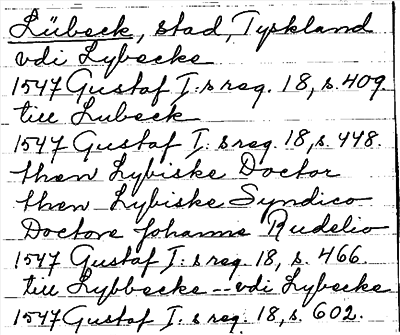 Lübeck, stad, Tyskland
vdi Lybecke
1547 Gustaf I:s reg. 18, s. 409.
till Lubeck
1547 Gustaf I:s reg. 18, s. 448.
then Lybiske Doctor
then Lybiske Syndico
Doctore Johanne Rudelio
1547 Gustaf I:s reg. 18, s. 466.
till Lybbecke -- vdi Lybecke
1547 Gustaf I:s reg. 18, s. 602.